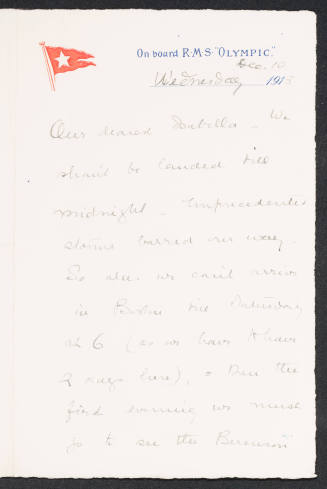 On board R.M.S. "OLYMPIC."
Dec. 10
Wednesday 1913
Our dearest Isabella - We
shan't be landed till
midnight - Unprecedented
storms barred our way.
So alas we can't arrive
in Boston till Saturday
at 6 (as we have to have
2 days here), & then the
first evening we must
go to see the Berenson